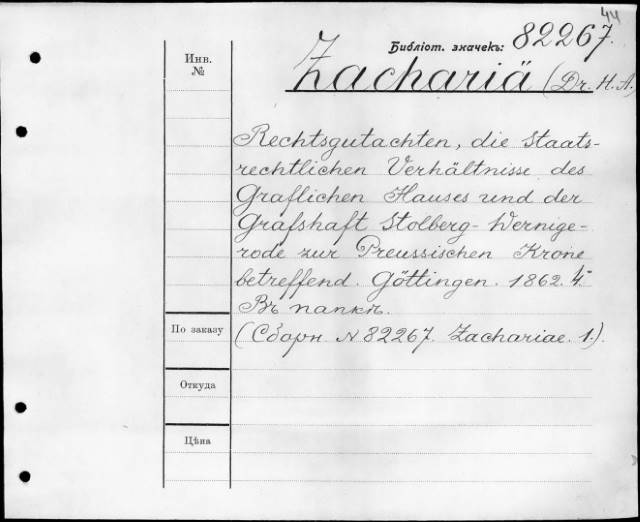 44
Библіот. значекъ: 82267.
Инв.
№
Zachariä (Dr. H. A.)
Rechtsgutachten, die Staats-
rechtlichen Verhältnisse des
Graflichen Hauses und der
Grafshaft Stolberg-Wernige-
rode zur Preussischen Krone
betreffend. Göttingen. 1862. 4.
Въ папкѣ.
По заказу
(Сборн. № 82267. Zachariae. 1.).
Откуда
Цѣна